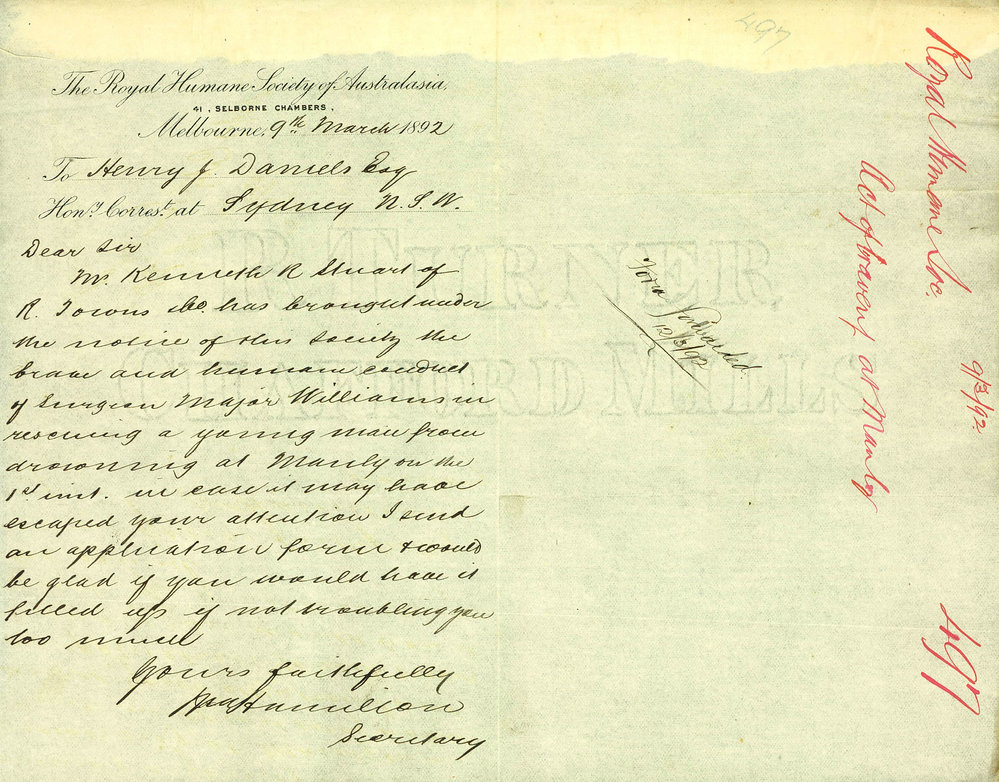 497
The Royal Humane Society of Australasia,
41, SELBORNE CHAMBERS,
Melbourne, 9th March 1892
To Henry J. Daniels Esq
Hony. Correst. at Sydney N.S.W.
Dear Sir
Mr. Kenneth R Stuart of
R. Towns & Co. has brought under
the notice of this Society the
brave and humane conduct
of Surgeon Major Williams in
rescuing a young man from
drowning at Manly on the
1st inst. in case it may have
escaped your attention I send
an application form & would
be glad if you would have it
filled up if not troubling you
too much
Yours faithfully
Hamilton
Secretary
R. TURNER
CHAFFORD MILLS
Form forwarded.
12/3/92
Royal Humane Soc.
9/3/92
Act of bravery at Manly
497